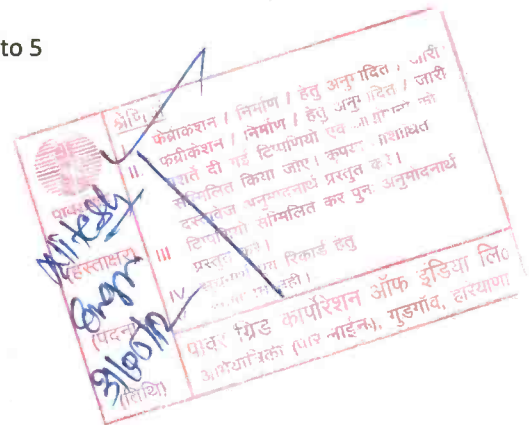 to 5
श्रेणि
I फेब्रीकेशन / निर्माण / हेतु अनुमोदित / जारी
II फेब्रीकेशन / निर्माण / हेतु अनुमोदित / जारी
दी गई टिप्पणियों एवं को
सम्मिलित किया जाए। कृपया संशोधित
दस्तावेज अनुमोदनार्थ प्रस्तुत करें।
III टिप्पणियों सम्मिलित कर पुनः अनुमोदनार्थ
प्रस्तुत करें।
IV रिकार्ड हेतु
नहीं।
पावर
Nitesh
हस्ताक्षर
Engr
(पदनाम)
(तिथि)
पावर ग्रिड कार्पोरेशन ऑफ इंडिया लि०
अभियांत्रिकी (पार लाईन), गुडगाँव, हरियाणा